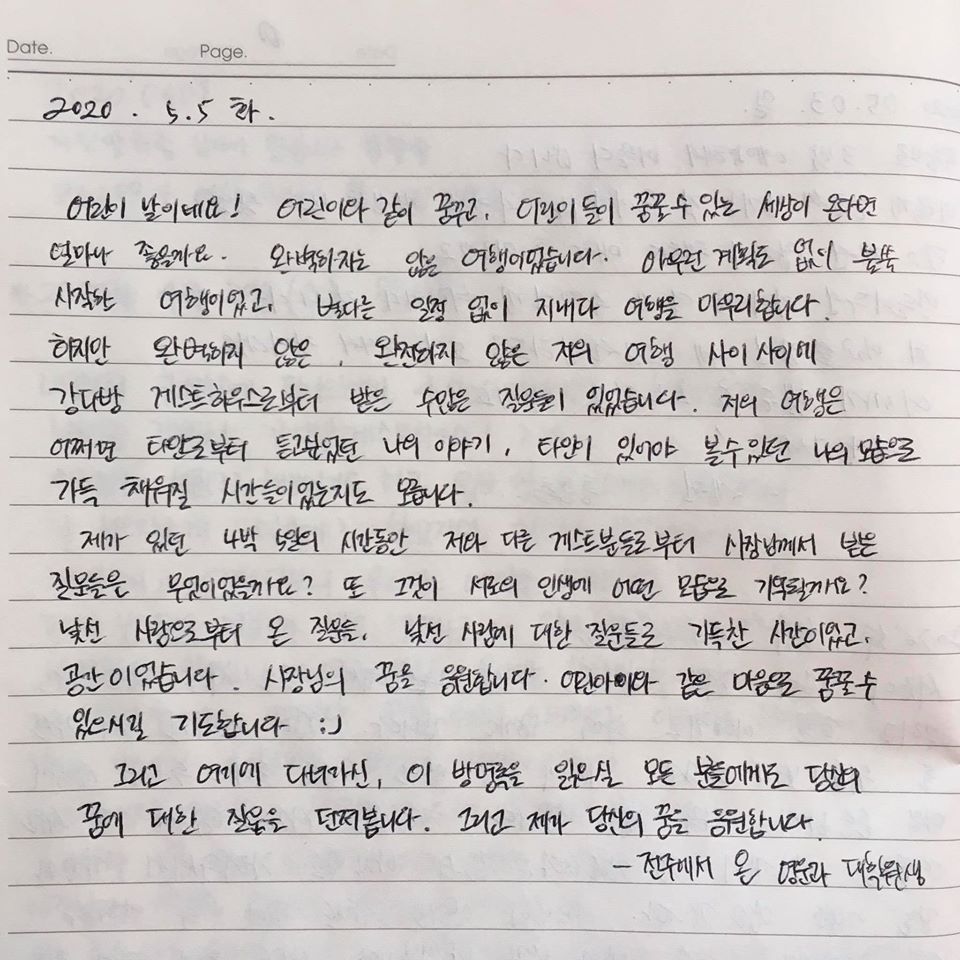 Date.
Page.
2020. 5.5 화.
어린이 날이네요! 어린이와 같이 꿈꾸고, 어린이들이 꿈꿀 수 있는 세상이 온다면
얼마나 좋을까요. 완벽하지는 않은 여행이었습니다. 아무런 계획도 없이 불쑥
시작한 여행이었고, 별다른 일정 없이 지내다 여행을 마무리합니다.
하지만 완벽하지 않은, 완전하지 않은 저의 여행 사이사이에
강다방 게스트하우스로부터 받은 수많은 질문들이 있었습니다. 저의 여행은
어쩌면 타인으로부터 듣고싶었던 나의 이야기, 타인이 있어야 볼 수 있던 나의 모습으로
가득 채워질 시간들이었는지도 모릅니다.
제가 있던 4박 5일의 시간동안 저와 다른 게스트분들로부터 사장님께서 받은
질문들은 무엇이었을까요? 또 그것이 서로의 인생에 어떤 모습으로 기억될까요?
낯선 사람으로부터 온 질문들, 낯선 사람에 대한 질문들로 가득찬 시간이었고,
공간이었습니다. 사장님의 꿈을 응원합니다. 어린아이와 같은 마음으로 꿈꿀 수
있으시길 기도합니다 :)
그리고 여기에 다녀가신, 이 방명록을 읽으실 모든 분들에게도 당신의
꿈에 대한 질문을 던져봅니다. 그리고 제가 당신의 꿈을 응원합니다.
- 전주에서 온 영문과 대학원생